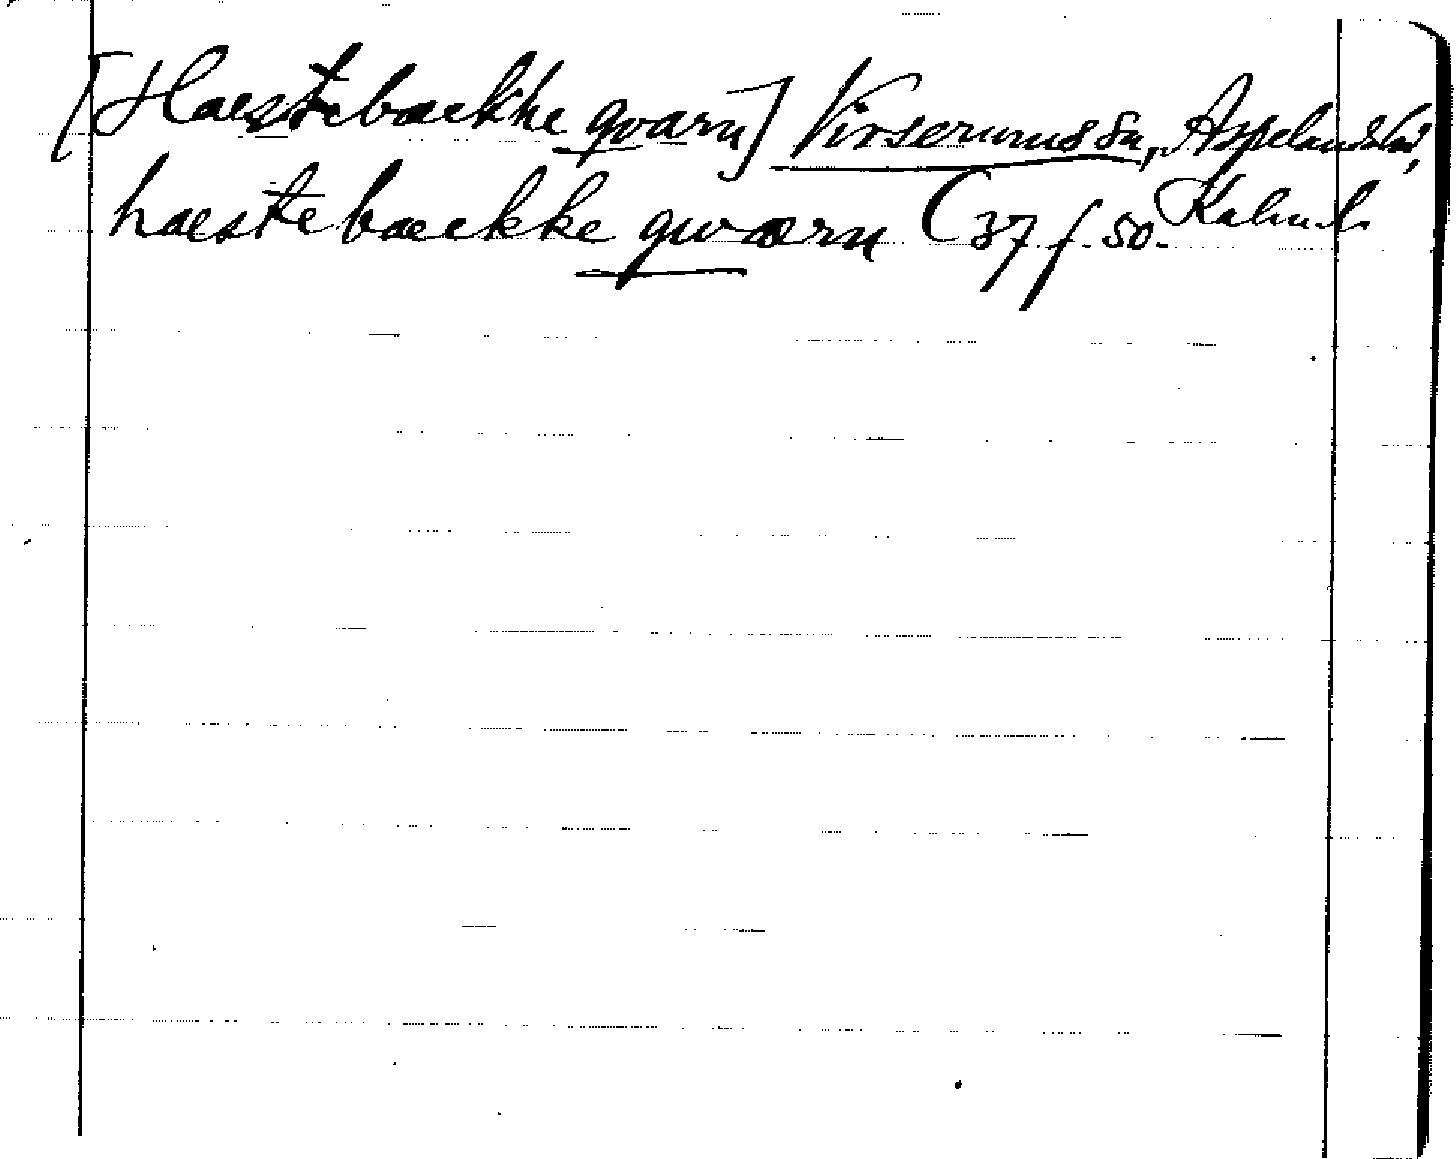 [Haestebaekke qvarn] Virserums sn, Aspelands hd,
haestebaekke qwærn (37 f. 50. Kalm. l.